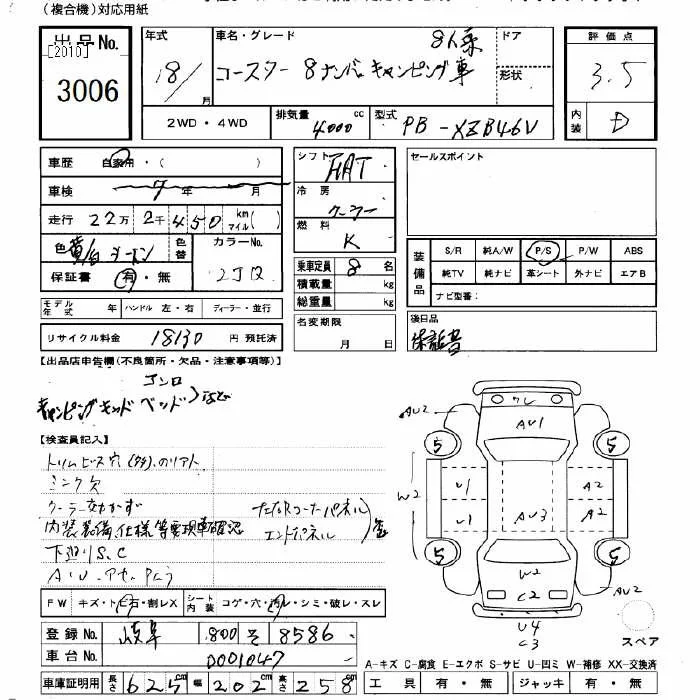 (複合機)対応用紙
出品No. [2010] 3006
年式 18/ 月
車名・グレード 8人乗
コースター 8ナンバーキャンピング車
ドア
形状
評価点 3.5
内装 D
2WD・4WD
排気量 4000 cc
型式 PB-XZB46V
車歴 自家用・( )
車検 年 月
走行 22万 2千 450 km マイル( )
色 色替 カラーNo. 2JQ
保証書 有・無
モデル年式 年 ハンドル 左・右 ディーラー・並行
リサイクル料金 18130 円 預託済
シフト FAT
冷房 クーラー
燃料 K
乗車定員 8 名
積載量 kg
総重量 kg
名変期限
月 日
セールスポイント
装備品 S/R 純A/W P/S P/W ABS
純TV 純ナビ 革シート 外ナビ エアB
ナビ型番:
後日品
保証書
【出品店申告欄(不良箇所・欠品・注意事項等)】
コンロ
キャンピングキッド ベッド など
【検査員記入】
クーラー効かず
内装装備、仕様等要現車確認
下廻りS、C
コーナーパネル
エンドパネル
FW キズ・トビ石・割レX シート内装 コゲ・穴・汚レ・シミ・破レ・スレ
登録No. 岐阜 800 そ 8586
車台No. 0001047
車庫証明用 長さ 625cm 幅 202cm 高さ 258cm
ワレ
AU2
AU1
5 5
W2
U1 A2
U1 AU3 A2
5 5
W2
C2
AU2
U4
C3
スペア
A-キズ C-腐食 E-エクボ S-サビ U-凹ミ W-補修 XX-交換済
工具 有・無 ジャッキ 有・無